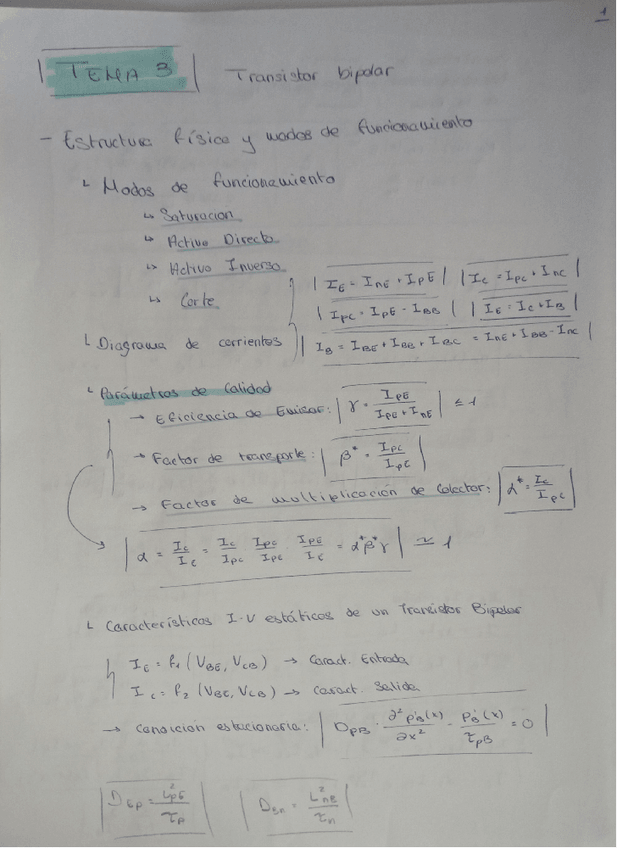 1
TEMA 3 Transistor bipolar
- Estructura física y modos de funcionamiento
↳ Modos de funcionamiento
↳ Saturacion
↳ Activo Directo
↳ Activo Inverso
↳ Corte
I_E = I_nE + I_pE | I_C = I_pC + I_nC
I_pC = I_pE - I_BB | I_E = I_C + I_B
↳ Diagrama de corrientes | I_B = I_BE + I_BB + I_BC = I_nE + I_BB - I_nC
↳ Parámetros de Calidad
→ Eficiencia de Emisor: | γ = I_pE / (I_pE + I_nE) | ≤ 1
→ Factor de transporte: | β* = I_pC / I_pE |
→ Factor de multiplicación de Colector: | α* = I_C / I_pC |
| α = I_C / I_E = I_C / I_pC · I_pC / I_pE · I_pE / I_E = α* β* γ | ≃ 1
↳ Características I-V estáticos de un Transistor Bipolar
I_E = f₁ (V_BE, V_CB) → Caract. Entrada
I_C = f₂ (V_BE, V_CB) → Caract. Salida
→ Condición estacionaria: | D_pB · ∂² p'_B(x) / ∂x² - p'_B(x) / τ_pB = 0 |
| D_Ep = L²_pE / τ_p | | D_Bn = L²_nB / τ_n |